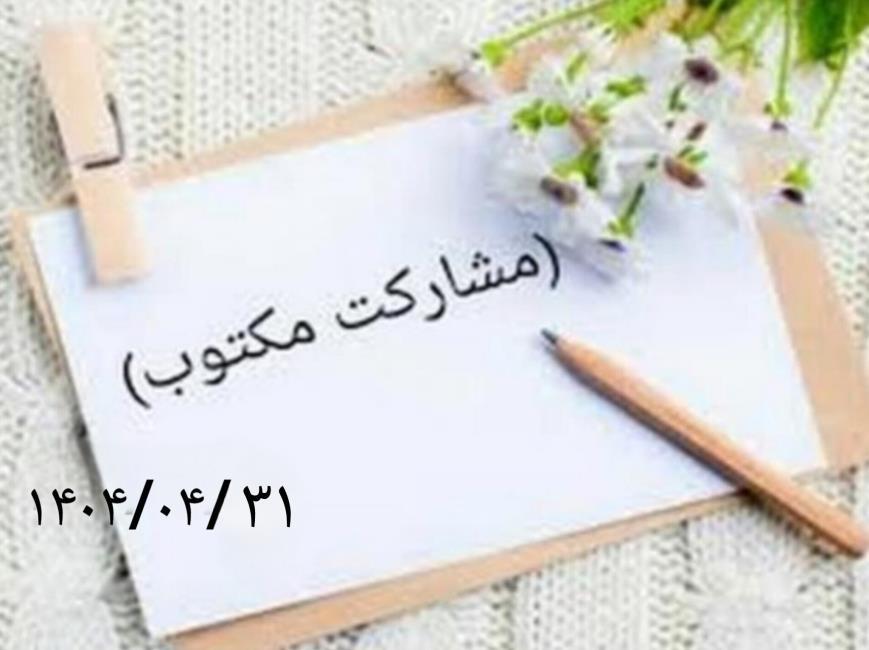 (مشارکت مکتوب)
۱۴۰۴/۰۴/۳۱